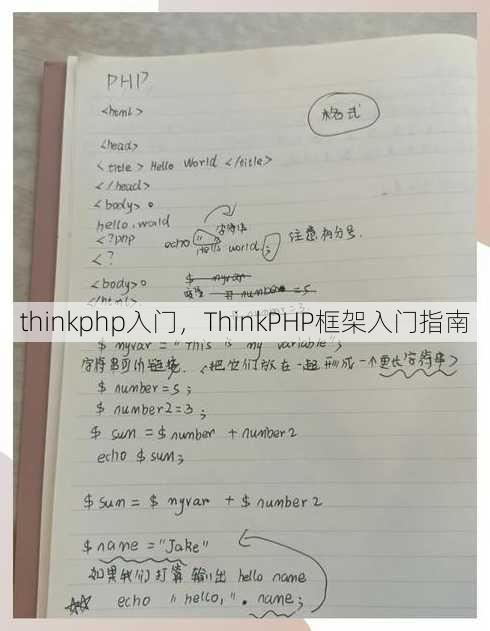 PHP
<html>
格式
<head>
<title> Hello World </title>
</head>
<body>
hello.world
字符串
<?php echo "Hello world"; 注意有分号.
<?
<body>
</html>
thinkphp入门，ThinkPHP框架入门指南
$ myvar = "This is my variable";
字符串的链接. (把它们放在一起形成一个更长字符串)
$ number=5;
$ number2=3;
$ sum = $ number + number2
echo $ sum;
$ sum = $ myvar + $ number2
$ name = "Jake"
如果我们打算输出 hello name
echo "hello,". name;